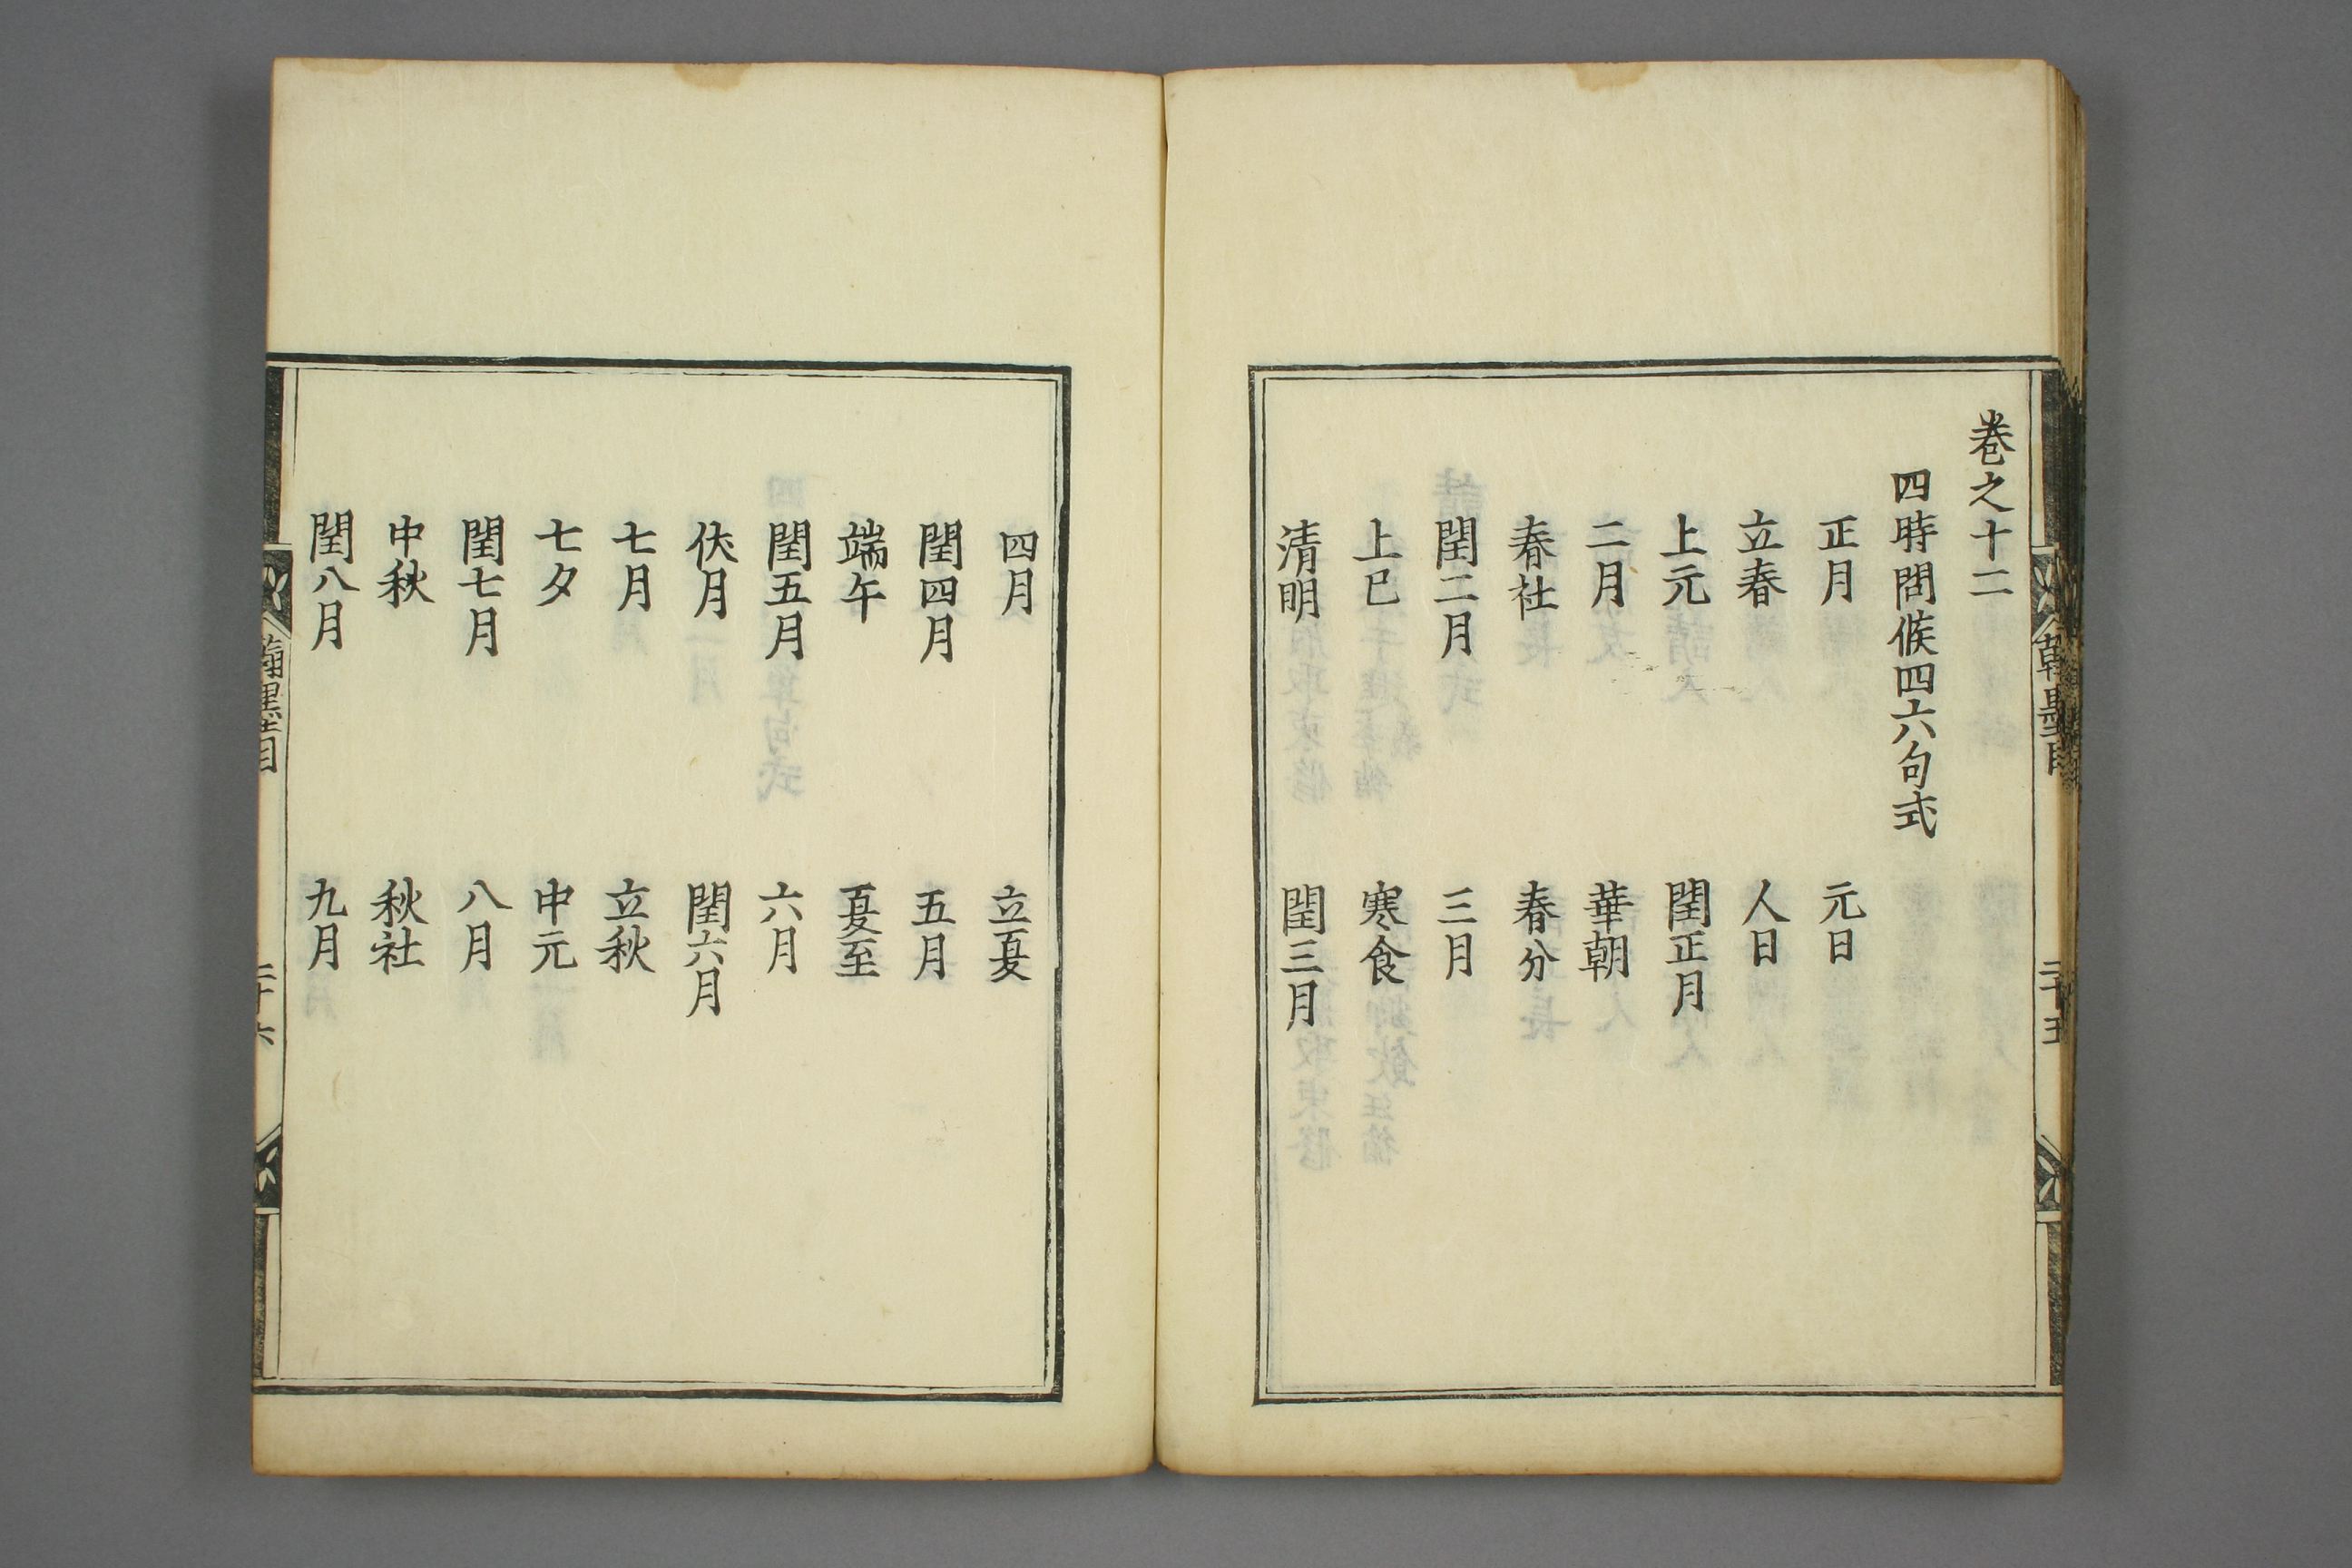 卷之十二
四時問候四六句式
正月 元日
立春 人日
上元 閏正月
二月 華朝
春社 春分
閏二月 三月
上巳 寒食
清明 閏三月
四月 立夏
閏四月 五月
端午 夏至
閏五月 六月
伏月 閏六月
七月 立秋
七夕 中元
閏七月 八月
中秋 秋社
閏八月 九月
翰墨目 二十五
翰墨目 二十六